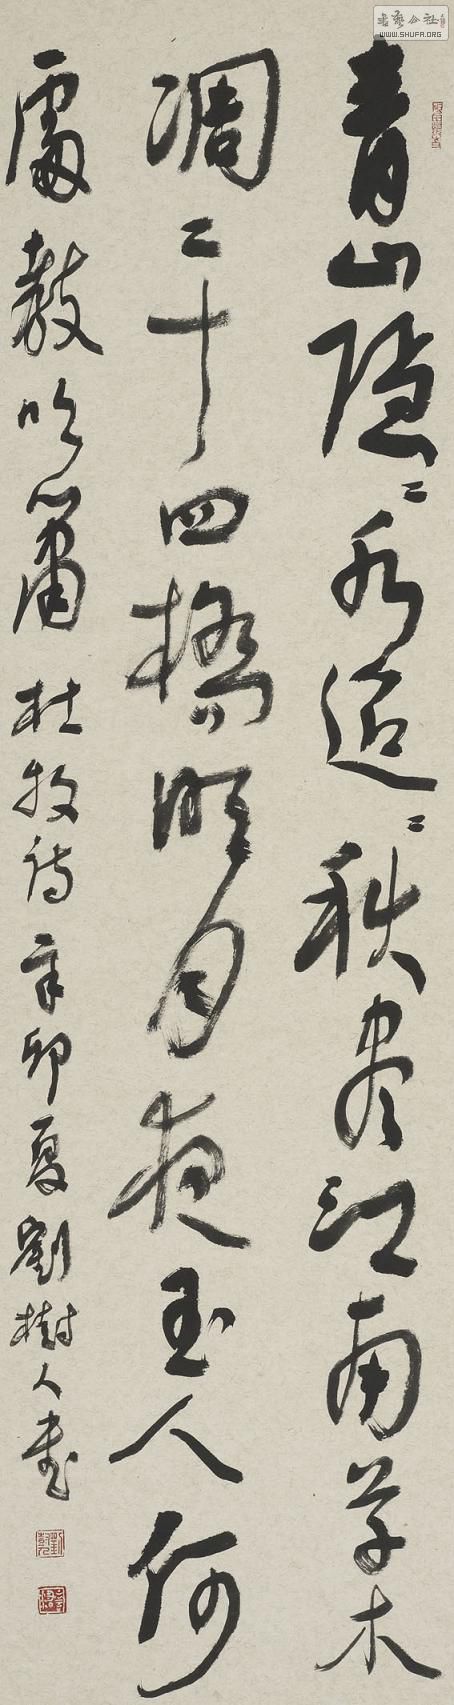 青山隐〻水迢〻秋尽江南草木
凋二十四橋明月夜玉人何
處教吹簫
杜牧诗辛卯夏劉樹人書
書艺公社
WWW.SHUFA.ORG